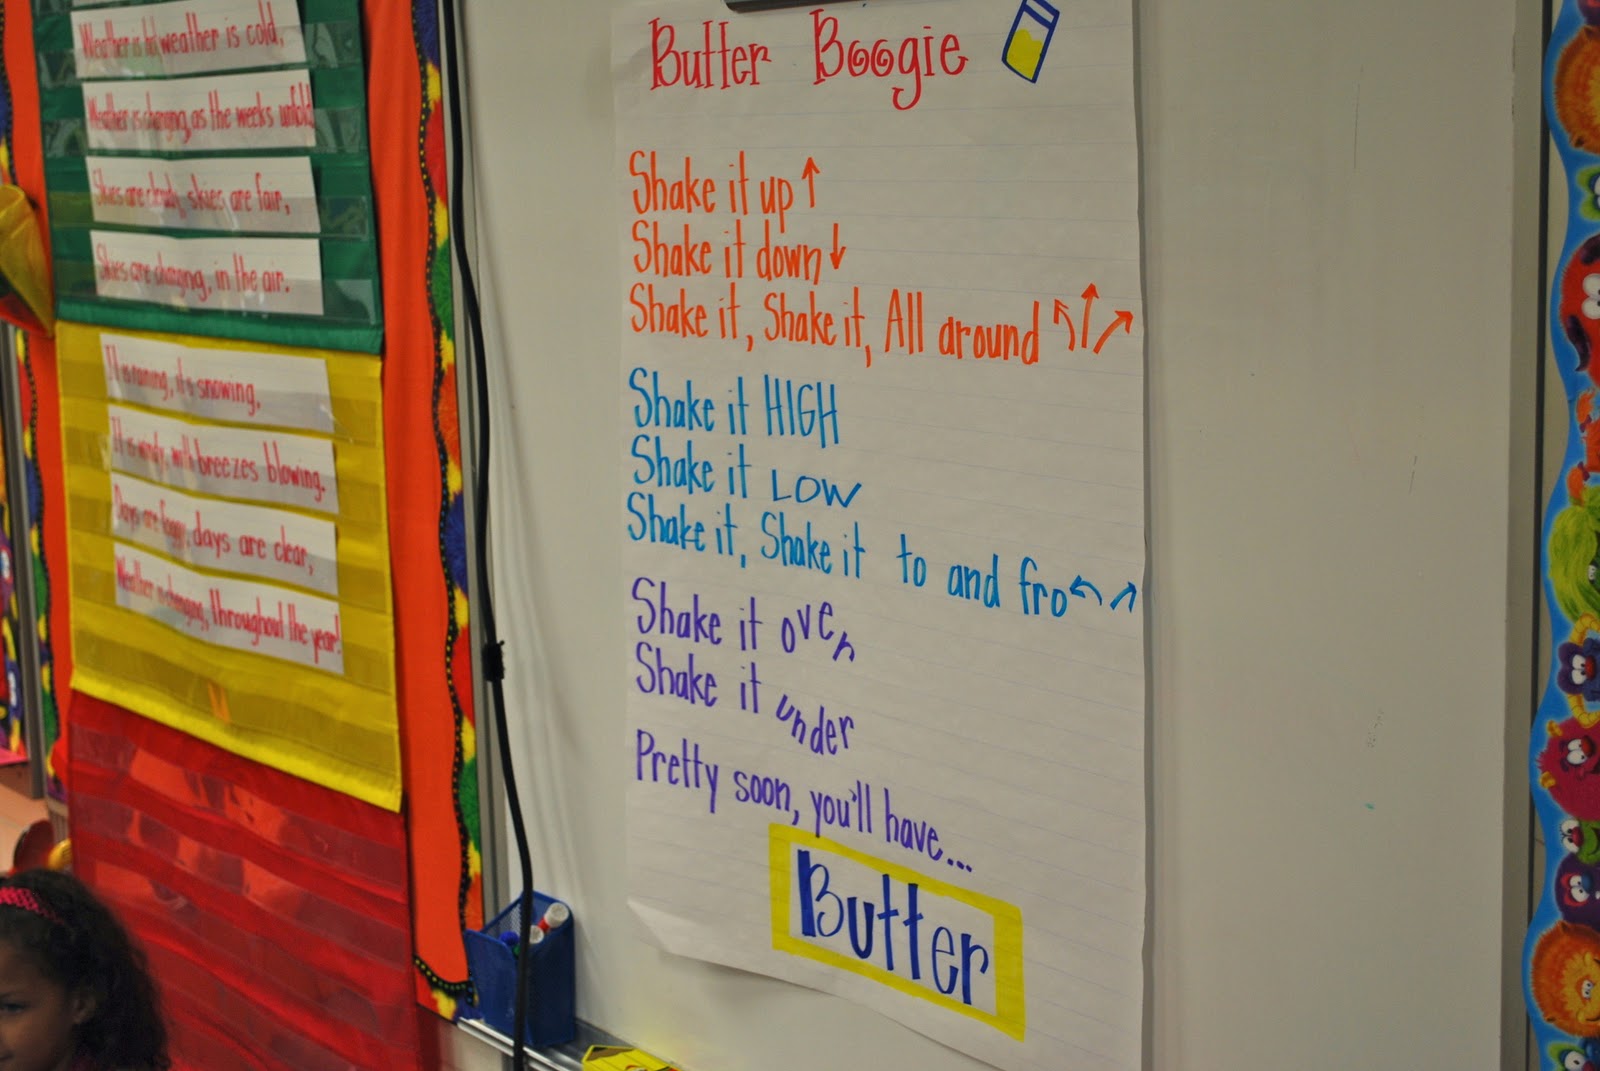 Weather is hot, weather is cold,
Weather is changing, as the weeks unfold.
Skies are cloudy, skies are fair,
Skies are changing, in the air.
It is raining, it is snowing.
It is windy, with breezes blowing.
Days are foggy, days are clear,
Weather is changing, throughout the year!
Butter Boogie
Shake it up ↑
Shake it down ↓
Shake it, Shake it, All around
Shake it HIGH
Shake it LOW
Shake it, Shake it to and fro
Shake it over
Shake it under
Pretty soon, you'll have...
Butter